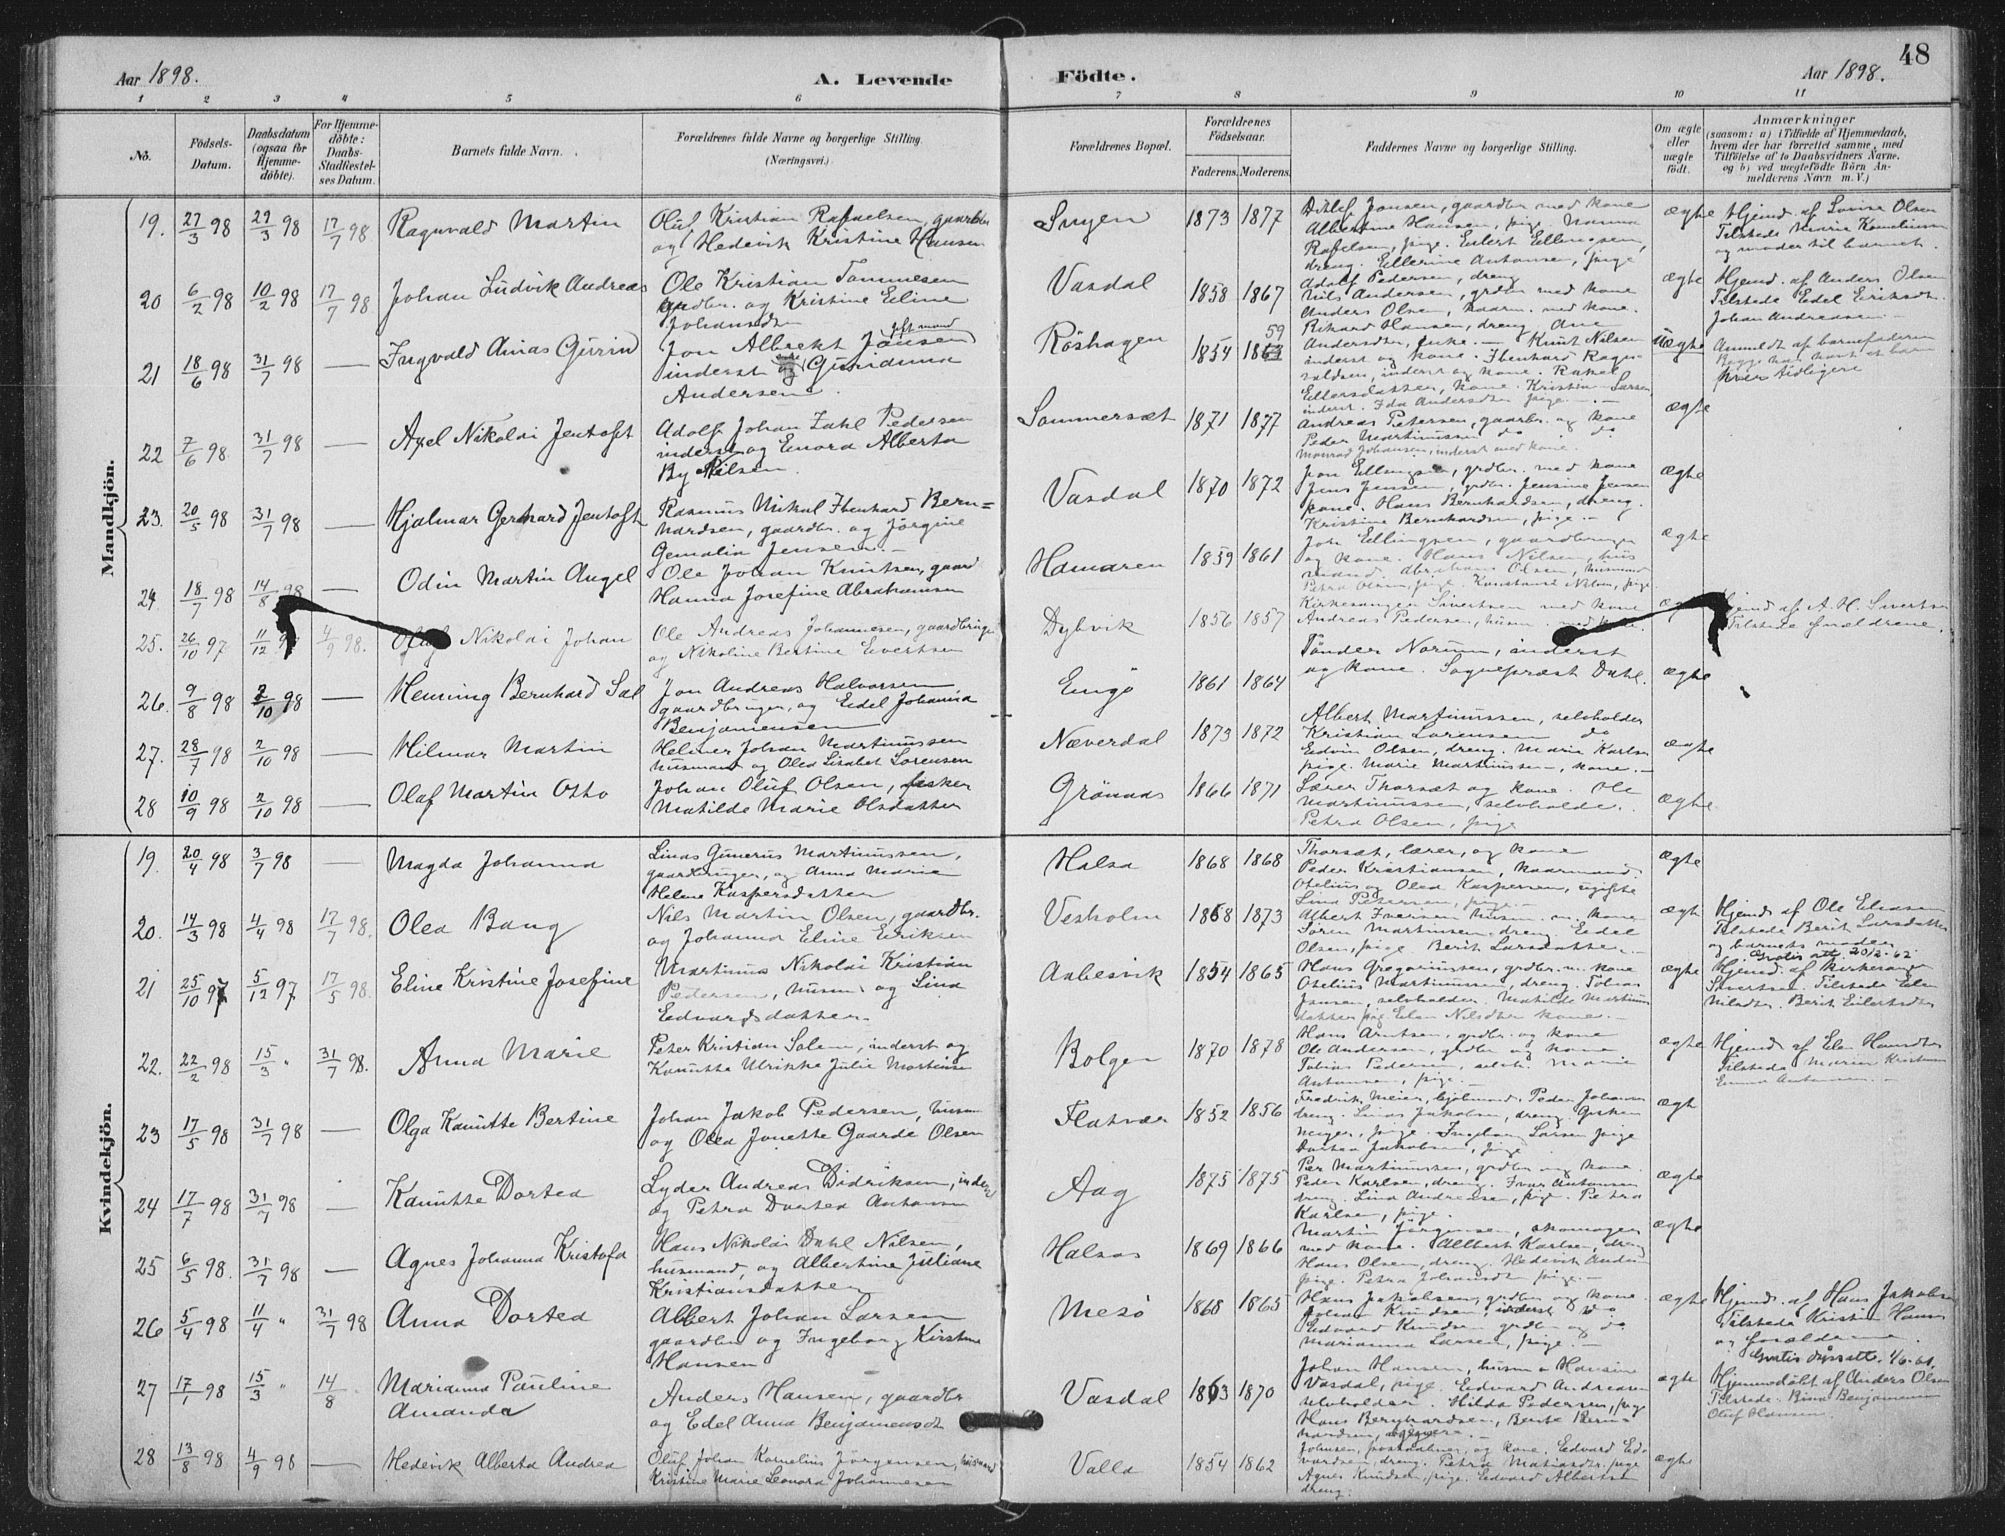 48
Aar 1898.
A. Levende
Födte.
Aar 1898.
1 2 3 4 5 6 7 8 9 10 11
No.
Födsels-Datum.
Daabsdatum (ogsaa for Hjemme-döbte).
For Hjemme-döbte: Daabs-Stadfæstel-ses Datum.
Barnets fulde Navn.
Forældrenes fulde Navne og borgerlige Stilling.
(Næringsvei.)
Forældrenes Bopæl.
Forældrenes Födselsaar.
Faderens. Moderens.
Faddernes Navne og borgerlige Stilling.
Om ægte eller uægte födt.
Anmærkninger
(saasom: a) i Tilfælde af Hjemmedaab,
hvem der har forrettet samme, med
Tilföielse af to Daabsvidners Navne.
og b) ved uægtefödte Börn An-
melderens Navn m. V.)
Mandkjön.
19. 27/3 98 29/3 98 17/7 98 Ragnvald Martin
Oluf Kristian Rafaelsen, gaardbr
og Hedevik Kristine Hansen
1873 1877
Ditlef Jansen, gaardbr med kone
ægte
Hjemd. af Lovise Olsen
20 6/2 98 10/2 98 17/7 98 Johan Ludvik Andreas
Ole Kristian Tommesen
grdbr. og Kristine Eline
Johansdtr
Vasdal 1858 1867
Adolf Pedersen, dreng
Nils Andersen, grdbr med kone
Anders Olsen, med kone.
ægte
Hjemd. af Anders Olsen
Tilstede Edel Eriksdtr.
Johan Andreassen
21 18/6 98 31/7 98 — Ingvald Anias Gurind
Jon Albrekt Jansen
inderst og Guridnna
Andersen.
Röshagen 1854 59
Rikard Hansen, dreng
uægte
Anmeldt af barnefaderen
hver tidligere
22 7/6 98 31/7 98 — Axel Nikolai Jentoft
Adolf Johan Zahl Pedersen
inderst og Enora Alberta
By Nilsen.
Sommersæt 1871 1877
Andreas Petersen, gaardbr. og kone
Peder Martinussen do do
Johansen, inderst med kone.
ægte
23. 20/5 98 31/7 98 — Hjalmar Gerhard Jentoft
Rasmus Mikal Ebenhard Bern=
hardsen, gaardbr. og Jörgine
Jensen.
Vasdal 1870 1872
Jon Ellingsen, grdbr. med kone
Jens Jenssen, grdbr. Jensine Jensen
kone. Hans Bernhardsen, dreng.
Kristine Bernhardsen, pige.
ægte
24. 18/7 98 14/8 98 — Odin Martin Angel
Ole Johan Knutsen, gaard
Hanna Josefine Abrahamsen
Hamaren 1859 1861
Joh. Ellingsen, gaardbruger
og kone. Hans Nilsen, hus
mand Abraham Olsen, husmand
Petra Olsen, pige. Konstanse Nilsen, pige.
ægte
25. 26/10 97 11/12 97 4/9 98. Nikolai Johan
Ole Andreas Johannesen, gaardbruger
og Nikoline Bertine Evertsen
Dybvik 1856 1857
Kirkesanger Sivertsen med kone
Andreas Pedersen, husm. med kone.
Hjemd af A. H. Sivertsen
Tilstede forældrene.
26. 9/8 98 2/10 98 — Henning Bernhard Sal
Jon Andreas Halvorsen
gaardbruger, og Edel Johanna
Benjaminsen
Engö 1861 1864
Tönder Norum, inderst
og kone. Sogneprest Dahl.
ægte
27. 28/7 98 2/10 98 — Hilmar Martin
Helmer Johan Martinussen
husmand og Olea Lisabet Sörensen
Næverdal 1873 1872
Albert Martinussen, selvholder
Kristian Sörensen do
Edvin Olsen, dreng. Marie Karlsen
pige. Marie Martinussen, kone.
ægte
28 10/9 98 2/10 98 — Olaf Martin Otto
Johan Oluf Olsen, fisker
Matilde Marie Olsdatter
Grönnaas 1866 1871
Lærer Thorsæt og kone. Ole
Martinussen, selvholder.
Petra Olsen, pige
ægte.
Kvindekjön.
19. 20/4 98 3/7 98 — Magda Johanna
Linas Gunerus Martinussen,
gaardbruger, og Anna Marie
Helene Kaspersdatter
Halsa 1868 1868
Thorsæt, lærer, og kone
Peder Kristiansen,
Otelius og Olea Kaspersen, ugifte
Lina Petersen, pige.
ægte
20. 14/3 98 4/4 98 17/7 98. Olea Bang
Nils Martin Olsen, gaardbr.
og Johanna Eline Eriksen
Vesholm 1868 1873
Sören Martinsen, dreng. Edel
Olsen, pige. Berit Larsdatter
ægt
Hjemd. af Ole Eliasen
Tilstede Berit Larsdatter
og barnets moder
Gratis att. 20/2-62
21 25/10 97 5/12 97 17/5 98. Eline Kristine Josefine
Martinus Nikolai Kristian
Pedersen, husm. og Lina
Edvardsdatter
Aabesvik 1854 1865
Hans Gregoriussen, grdbr. m. kone
Otelius Martinussen, dreng. Tobias
Jansen, selvholder. Matilde Martinus
datter pige. Elen Nilsdtr kone.
ægte
Hjemd. af kirkesanger
Sivertsen. Tilstede Elen
Nilsdtr. Berit Eilertsdtr
22. 22/2 98 15/3 " 31/7 98. Anna Marie
Peter Kristian Solem, inderst og
Kanutte Ulrikke Julie Mortinsen
Bolgen 1870 1878
Hans Arntsen, grdbr. og kone
Ole Andersen, grdbr og kone
Tobias Pedersen, selvh. Marie
Antonsen, pige.
ægte
Hjemd. af Elen Hansdtr
Tilstede Maren Kristiansen
23 17/5 98 31/7 98 — Olga Kanutte Bertine
Johan Jakob Pedersen, husm
og Olea Jonette Gaarde Olsen
Flatvær 1852 1856
Fredrik Meier, Peder Johansen
dreng. Linas Jakobsen, dreng.
Meier, pige. Ingeborg Larsen pige
Dortea Jakobsen, pige
ægt
24 17/7 98 31/7 98 — Kanutte Dortea
Lyder Andreas Didriksen, inderst
og Petra Dortea Antonsen
Aag 1875 1875
Per Martinussen, grdbr og kone.
Peder Karlsen, dreng. Ivar Antonsen
dreng. Lina Andreasen, pige. Petra
Karlsen, pige.
ægte
25 6/5 98. 31/7 98 — Agnes Johanna Kristofa
Hans Nikolai Dahl Nilsen,
husmand, og Albertine Juliane
Kristiansdatter
Halsos 1869 1866
Martin Jörgensen, skomager
med kone. Albert Karlsen, dreng
Hans Olsen, dreng. Hedevik Anders
pige. Petra Johansdtr pige.
ægte
26 5/4 98 11/4 " 31/7 98 Anna Dortea
Albert Johan Larsen
gaardbr og Ingeborg Kirstine
Hansen
Mesö 1868 1865
Hans Jakobsen, grdbr og kone
Johan Knudsen, inderst do
Edvard Knudsen grdbr og do
Marianna Larsen, pige.
ægte
Hjemd. af Hans Jakobsen
Tilstede Kristen Hans
og forældrene.
Gratis dåpsatt. 1/6-61.
27 17/1 98 15/3 " 14/8 Marianna Pauline
Amanda
Anders Hansen, gaardbr
og Edel Anna Benjaminsdtr
Vasdal 1863 1870
Johan Hansen, husm Hansine
Vasdal, pige. Edvard Andreasen
selvholder. Hilda Pedersen, pige
Hans Bernhardsen, Bern
hardsen,
ægte
Hjemmedöbt af Anders Olsen
Tilstede. Benjaminsen
Oluf Hansen.
28 13/8 98 4/9 98 — Hedevik Alberta Andrea
Oluf Johan Kornelius Jörgensen, husmand
Kristine Marie Leonora Johannesen
Valla 1854 1862
Johnsen, postaabner, og kone. Edvard Ed-
vardsen, dreng. Petra Matiasdtr. pige
Agnes Knudsen, pige. Edvard Albertsen
dreng.
ægte